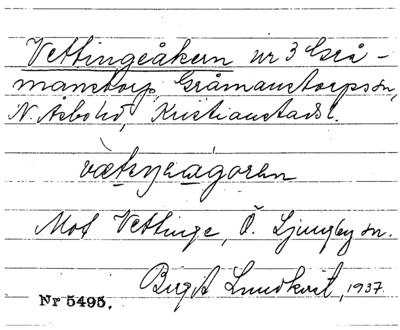 Vettingeåkern nr 3 Grå-
manstorp, Gråmanstorps sn,
N. Åsbo hd, Kristianstads l.
Mot Vettinge, Ö. Ljungby sn.
Birgit Lundkvist, 1937.
Nr 5495.